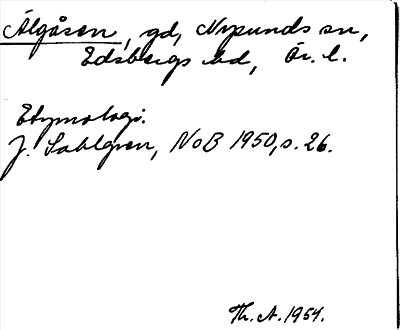 Älgåsen, gd, Nysunds sn,
Edsbergs hd, Ör. l.
Etymologi.
J. Sahlgren, NoB 1950, s. 26.
Th. A. 1954.